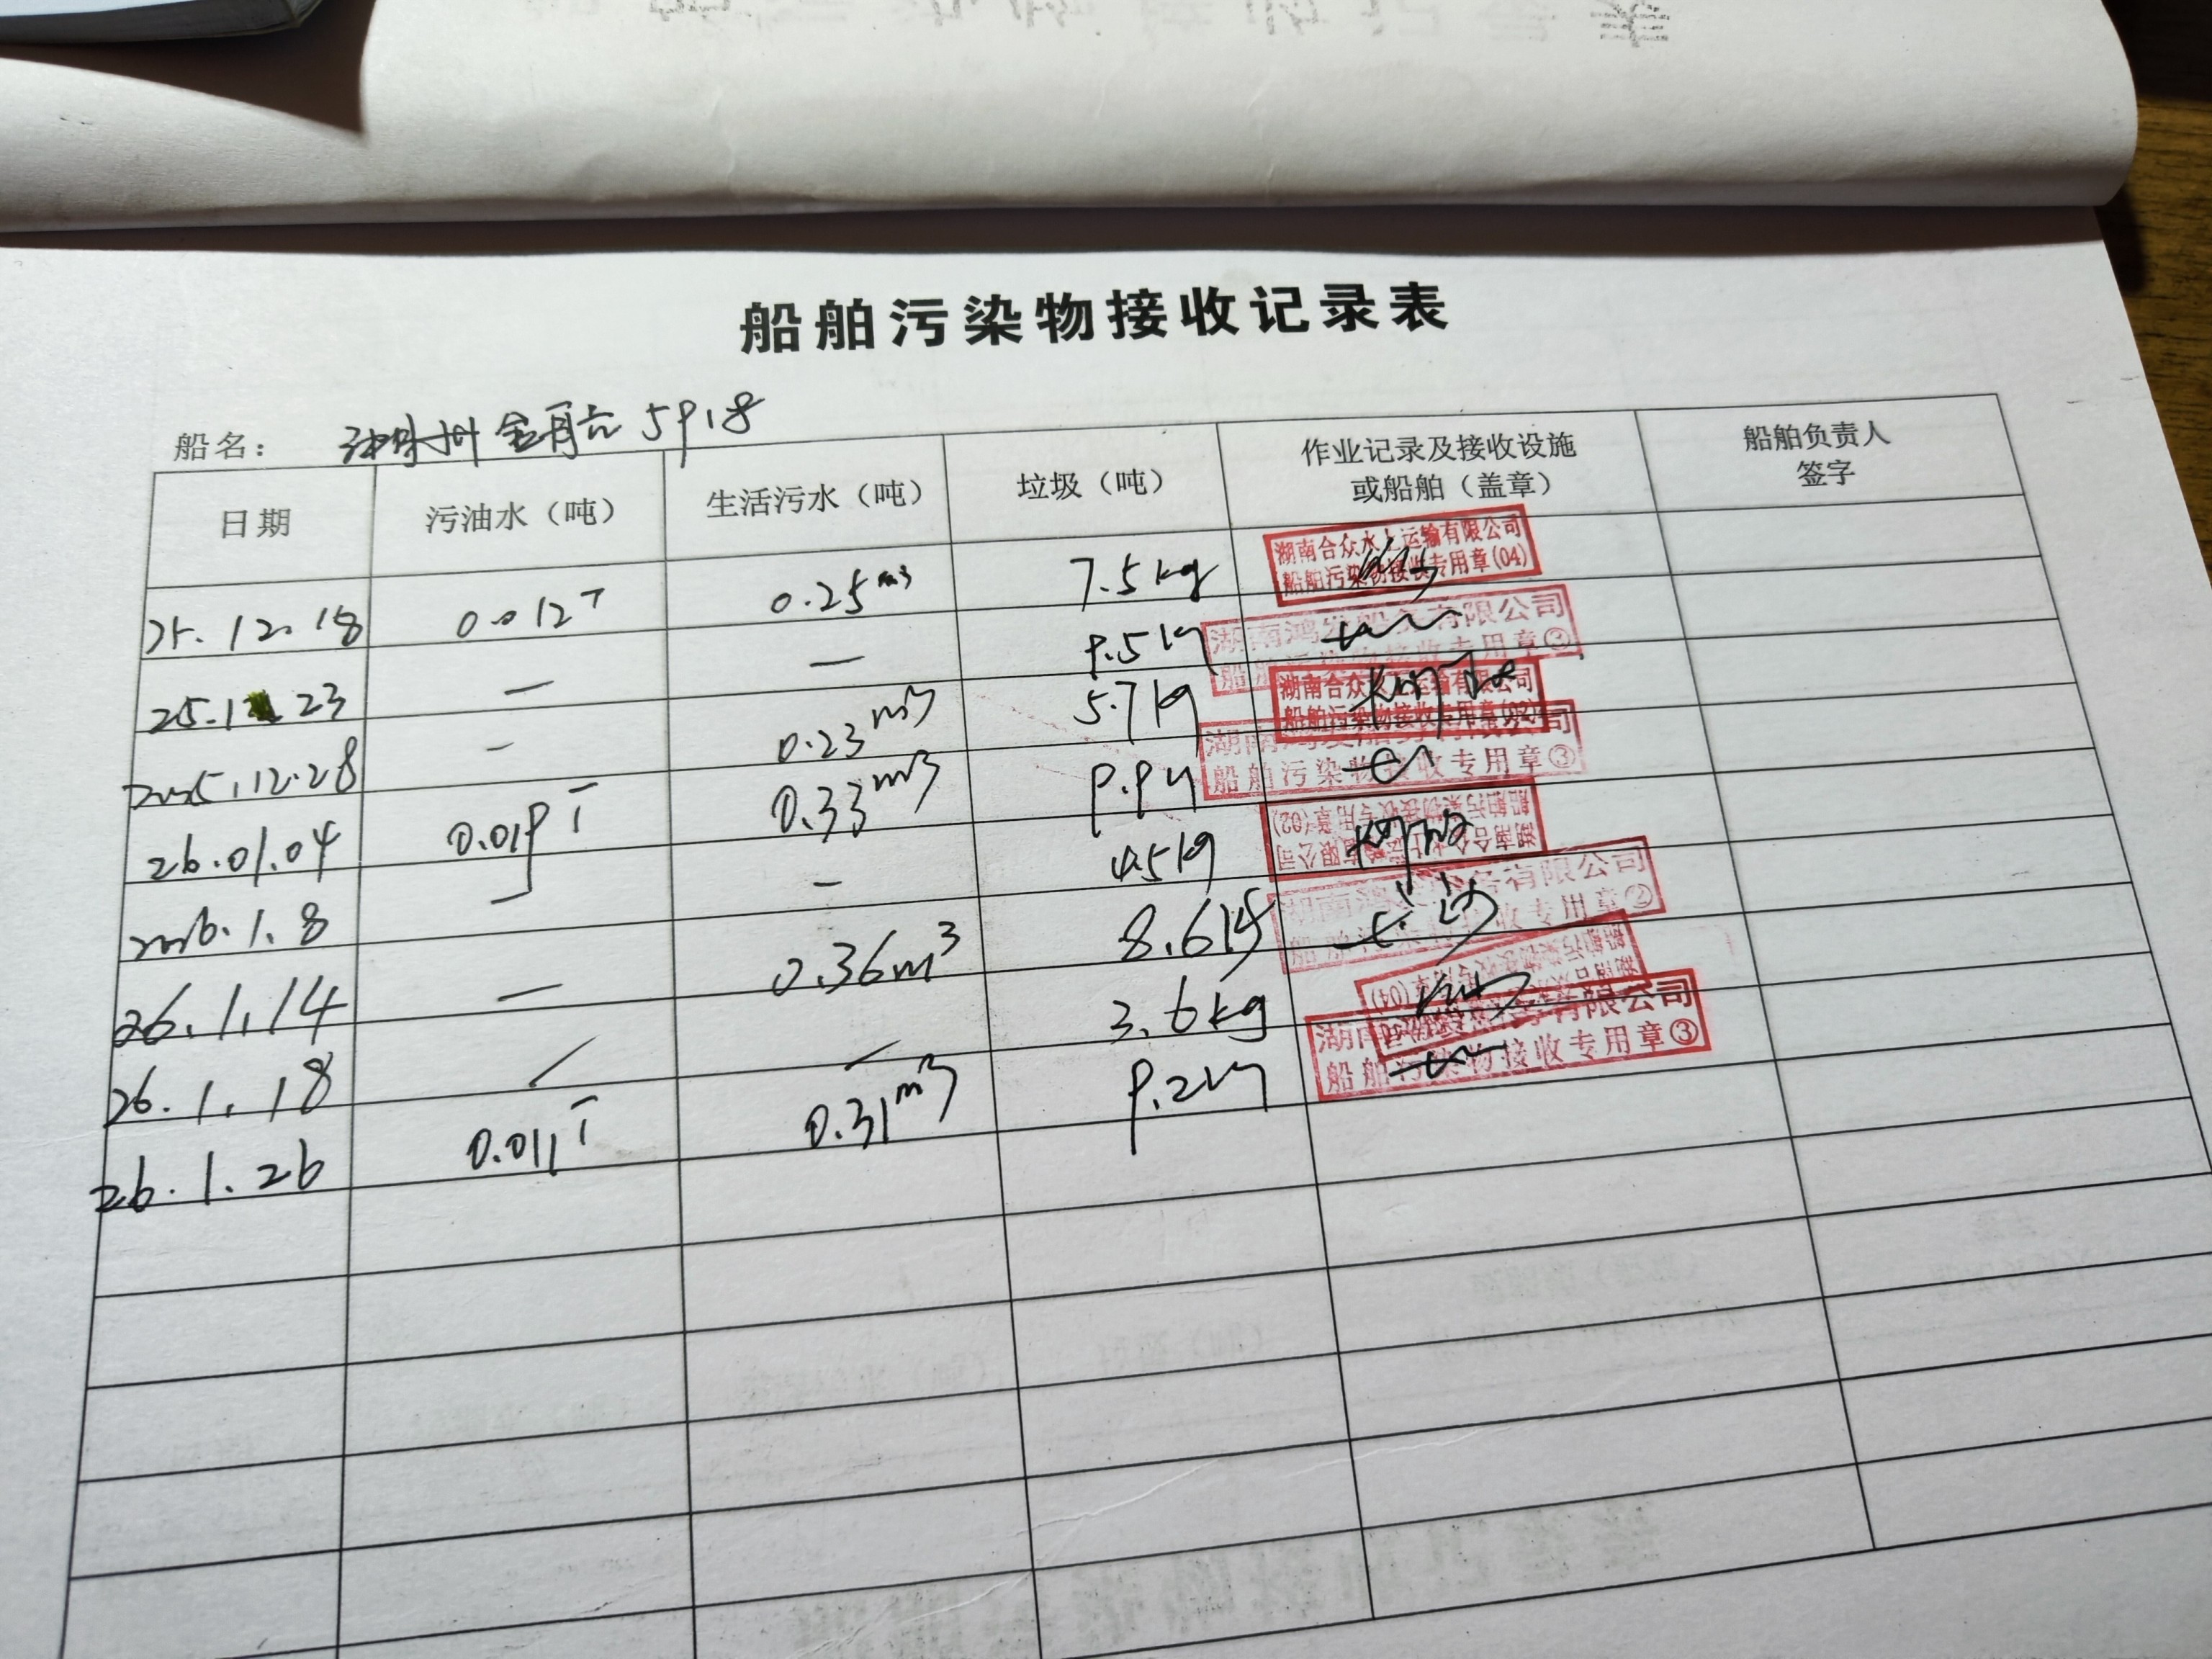 船舶污染物接收记录表
船名： 5918
日期 污油水（吨） 生活污水（吨） 垃圾（吨） 作业记录及接收设施或船舶（盖章） 船舶负责人签字
25.12.18 0.012T 0.25m3 7.5kg 湖南合众水上运输有限公司 船舶污染物接收专用章(04)
25.12.23 — — 9.5kg 有限公司 船舶污染物接收专用章③
2025.12.28 — 0.23m3 5.7kg 湖南合众水上运输有限公司 船舶污染物接收专用章
26.01.04 0.019T 0.33m3 9.9kg 船舶污染物接收专用章③
2026.1.8 — 4.5kg 湖南合众水上运输有限公司 船舶污染物接收专用章(02)
26.1.14 — 0.36m3 8.6kg 有限公司 船舶污染物接收专用章②
26.1.18 / / 3.6kg 船舶污染物接收专用章(04)
26.1.26 0.011T 0.31m3 9.2kg 有限公司 船舶污染物接收专用章③